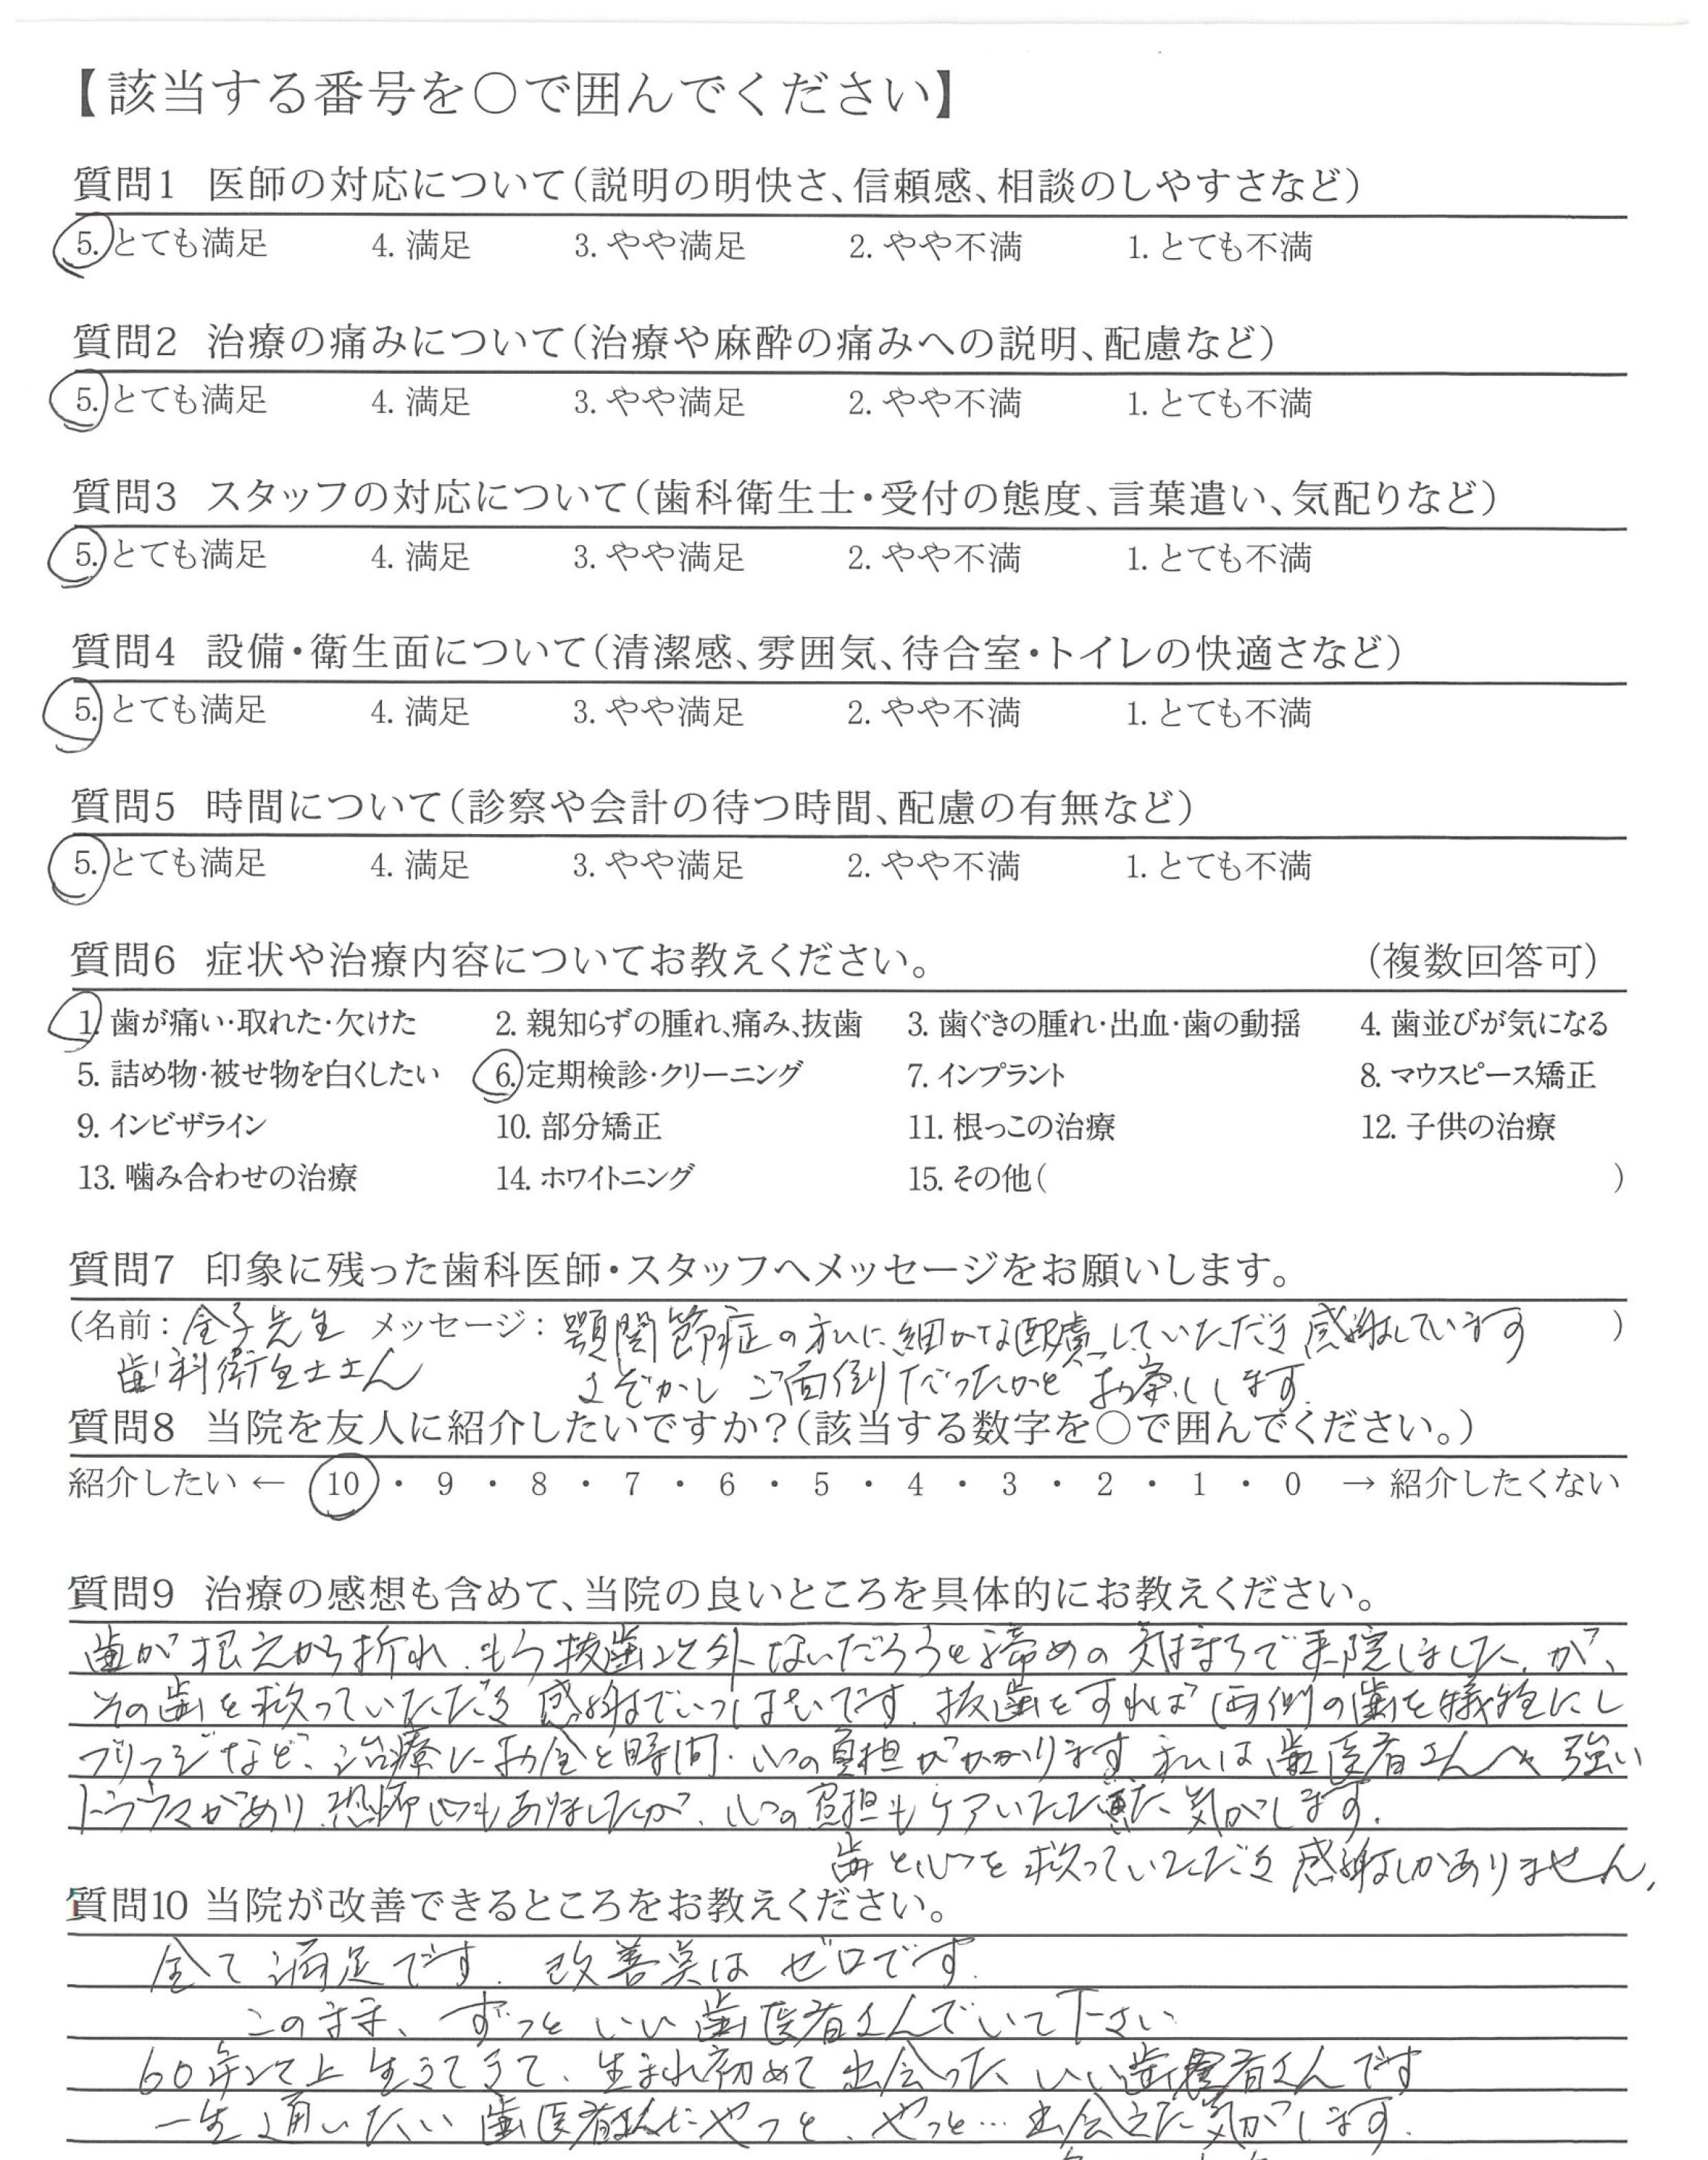 【該当する番号を〇で囲んでください】
質問1 医師の対応について(説明の明快さ、信頼感、相談のしやすさなど)
5. とても満足 4. 満足 3. やや満足 2. やや不満 1. とても不満
質問2 治療の痛みについて(治療や麻酔の痛みへの説明、配慮など)
5. とても満足 4. 満足 3. やや満足 2. やや不満 1. とても不満
質問3 スタッフの対応について(歯科衛生士・受付の態度、言葉遣い、気配りなど)
5. とても満足 4. 満足 3. やや満足 2. やや不満 1. とても不満
質問4 設備・衛生面について(清潔感、雰囲気、待合室・トイレの快適さなど)
5. とても満足 4. 満足 3. やや満足 2. やや不満 1. とても不満
質問5 時間について(診察や会計の待つ時間、配慮の有無など)
5. とても満足 4. 満足 3. やや満足 2. やや不満 1. とても不満
質問6 症状や治療内容についてお教えください。 (複数回答可)
1. 歯が痛い・取れた・欠けた 2. 親知らずの腫れ、痛み、抜歯 3. 歯ぐきの腫れ・出血・歯の動揺 4. 歯並びが気になる
5. 詰め物・被せ物を白くしたい 6. 定期検診・クリーニング 7. インプラント 8. マウスピース矯正
9. インビザライン 10. 部分矯正 11. 根っこの治療 12. 子供の治療
13. 噛み合わせの治療 14. ホワイトニング 15. その他( )
質問7 印象に残った歯科医師・スタッフへメッセージをお願いします。
(名前: 金子先生 メッセージ: 顎関節症の私に細かな配慮していただき感謝しています )
歯科衛生士さん さぞかし ご面倒だったかと お察しします.
質問8 当院を友人に紹介したいですか?(該当する数字を〇で囲んでください。)
紹介したい ← 10 ・ 9 ・ 8 ・ 7 ・ 6 ・ 5 ・ 4 ・ 3 ・ 2 ・ 1 ・ 0 → 紹介したくない
質問9 治療の感想も含めて、当院の良いところを具体的にお教えください。
歯が根元から折れ、もう抜歯以外ないだろうと諦めの気持ちで来院しました、が、
その歯を救っていただき感謝でいっぱいです. 抜歯をすれば両側の歯を犠牲にし
ブリッジなど、治療にお金と時間・心の負担がかかります 私は歯医者さんへ強い
トラウマがあり、恐怖心もありましたが、心の負担もケアいただいた気がします.
歯と心を救っていただき感謝しかありません.
質問10 当院が改善できるところをお教えください。
全て満足です. 改善点はゼロです.
このまま、ずっといい歯医者さんでいて下さい
60年以上生きてきて、生まれ初めて出会った いい歯医者さんです
一生通いたい歯医者さんにやっと、やっと…出会えた気がします.